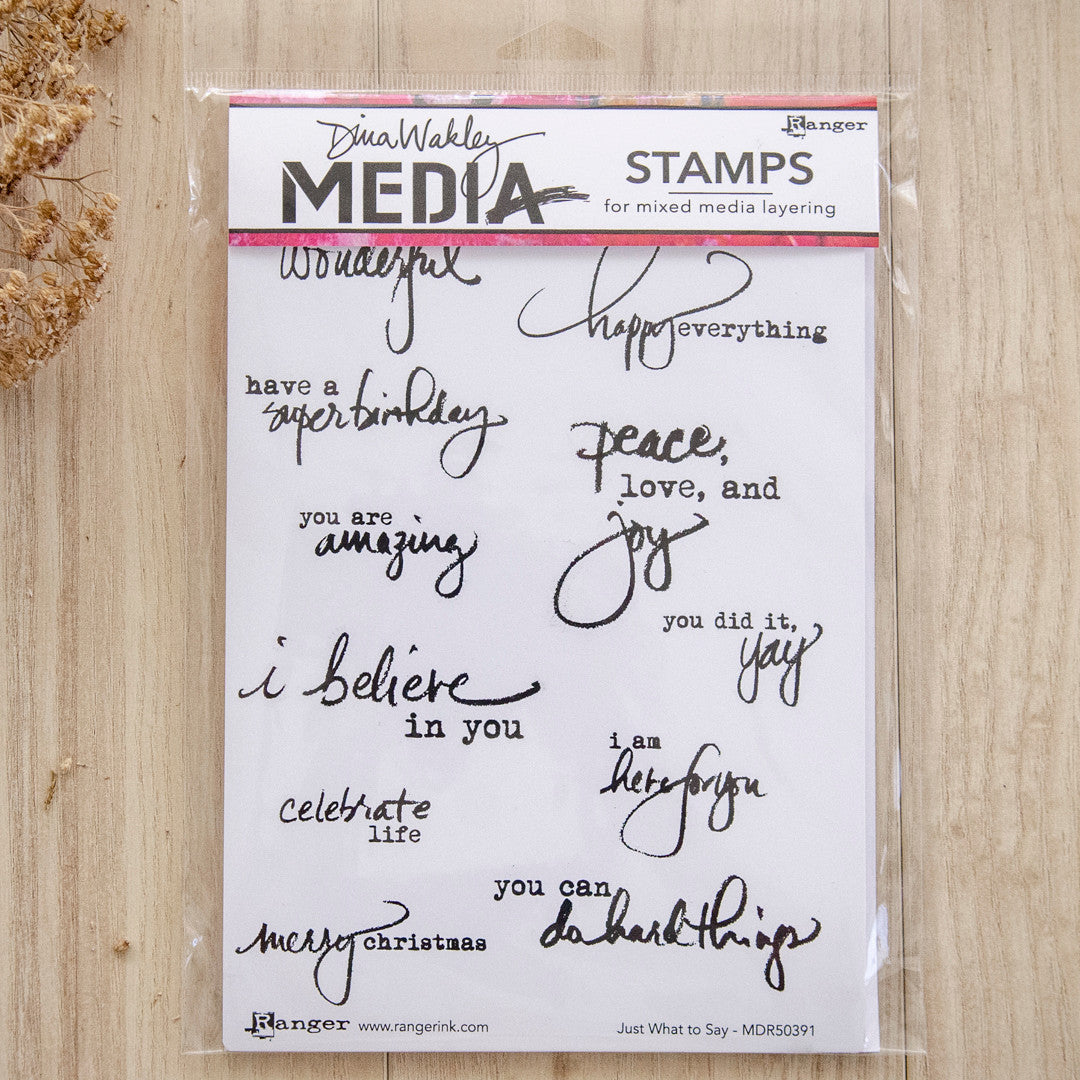 Dina Wakley
MEDIA
Ranger
STAMPS
for mixed media layering
wonderful
happy everything
have a
super birthday
peace,
love, and
joy
you are
amazing
you did it,
yay
i believe
in you
i am
here for you
celebrate
life
you can
do hard things
merry christmas
Ranger www.rangerink.com
Just What to Say - MDR50391